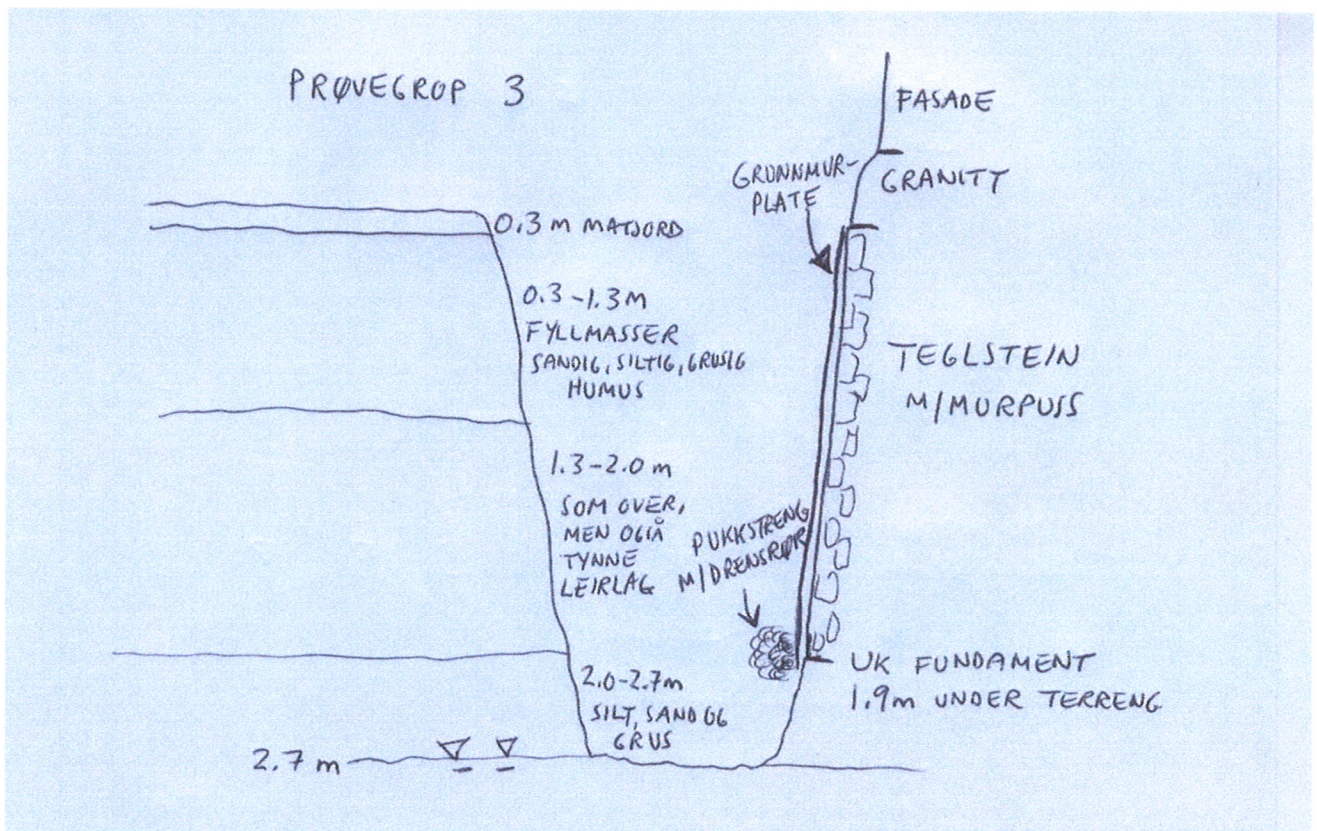 PRØVEGROP 3
FASADE
GRUNNMUR-
PLATE
GRANITT
0.3 m MATJORD
0.3-1.3 m
FYLLMASSER
SANDIG, SILTIG, GRUSIG
HUMUS
TEGLSTEIN
M/MURPUSS
1.3-2.0 m
SOM OVER,
MEN OGSÅ
TYNNE
LEIRLAG
PUKKSTRENG
M/DRENSRØR
UK FUNDAMENT
1.9m UNDER TERRENG
2.0-2.7m
SILT, SAND OG
GRUS
2.7 m